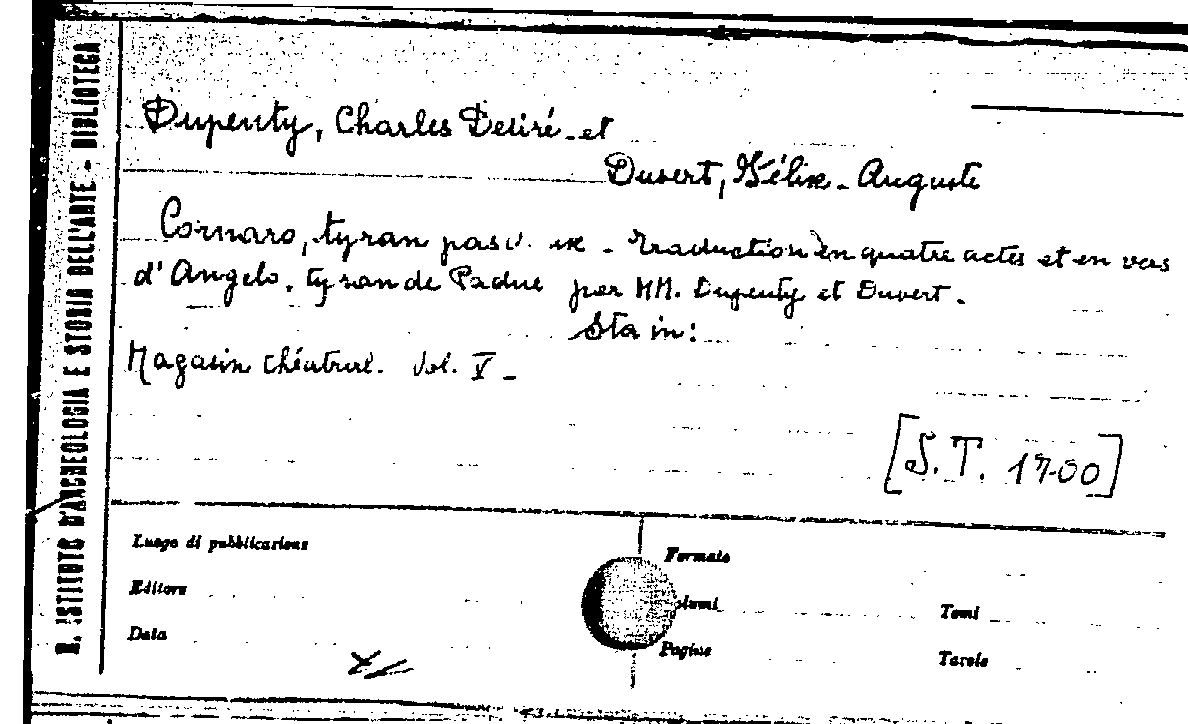 R. ISTITUTO D'ARCHEOLOGIA E STORIA DELL'ARTE - BIBLIOTECA
Dupenty, Charles Desiré et
Duvert, Félix-Auguste
Cornaro, tyran pas - Traduction en quatre actes et en vers
d'Angelo, tyran de Padue par MM. Dupenty et Duvert.
Sta in:
Magasin théatral. Vol. V -
[S.T. 1700]
Luogo di pubblicazione
Formato
Editore
olumi
Tomi
Data
Pagine
Tavole